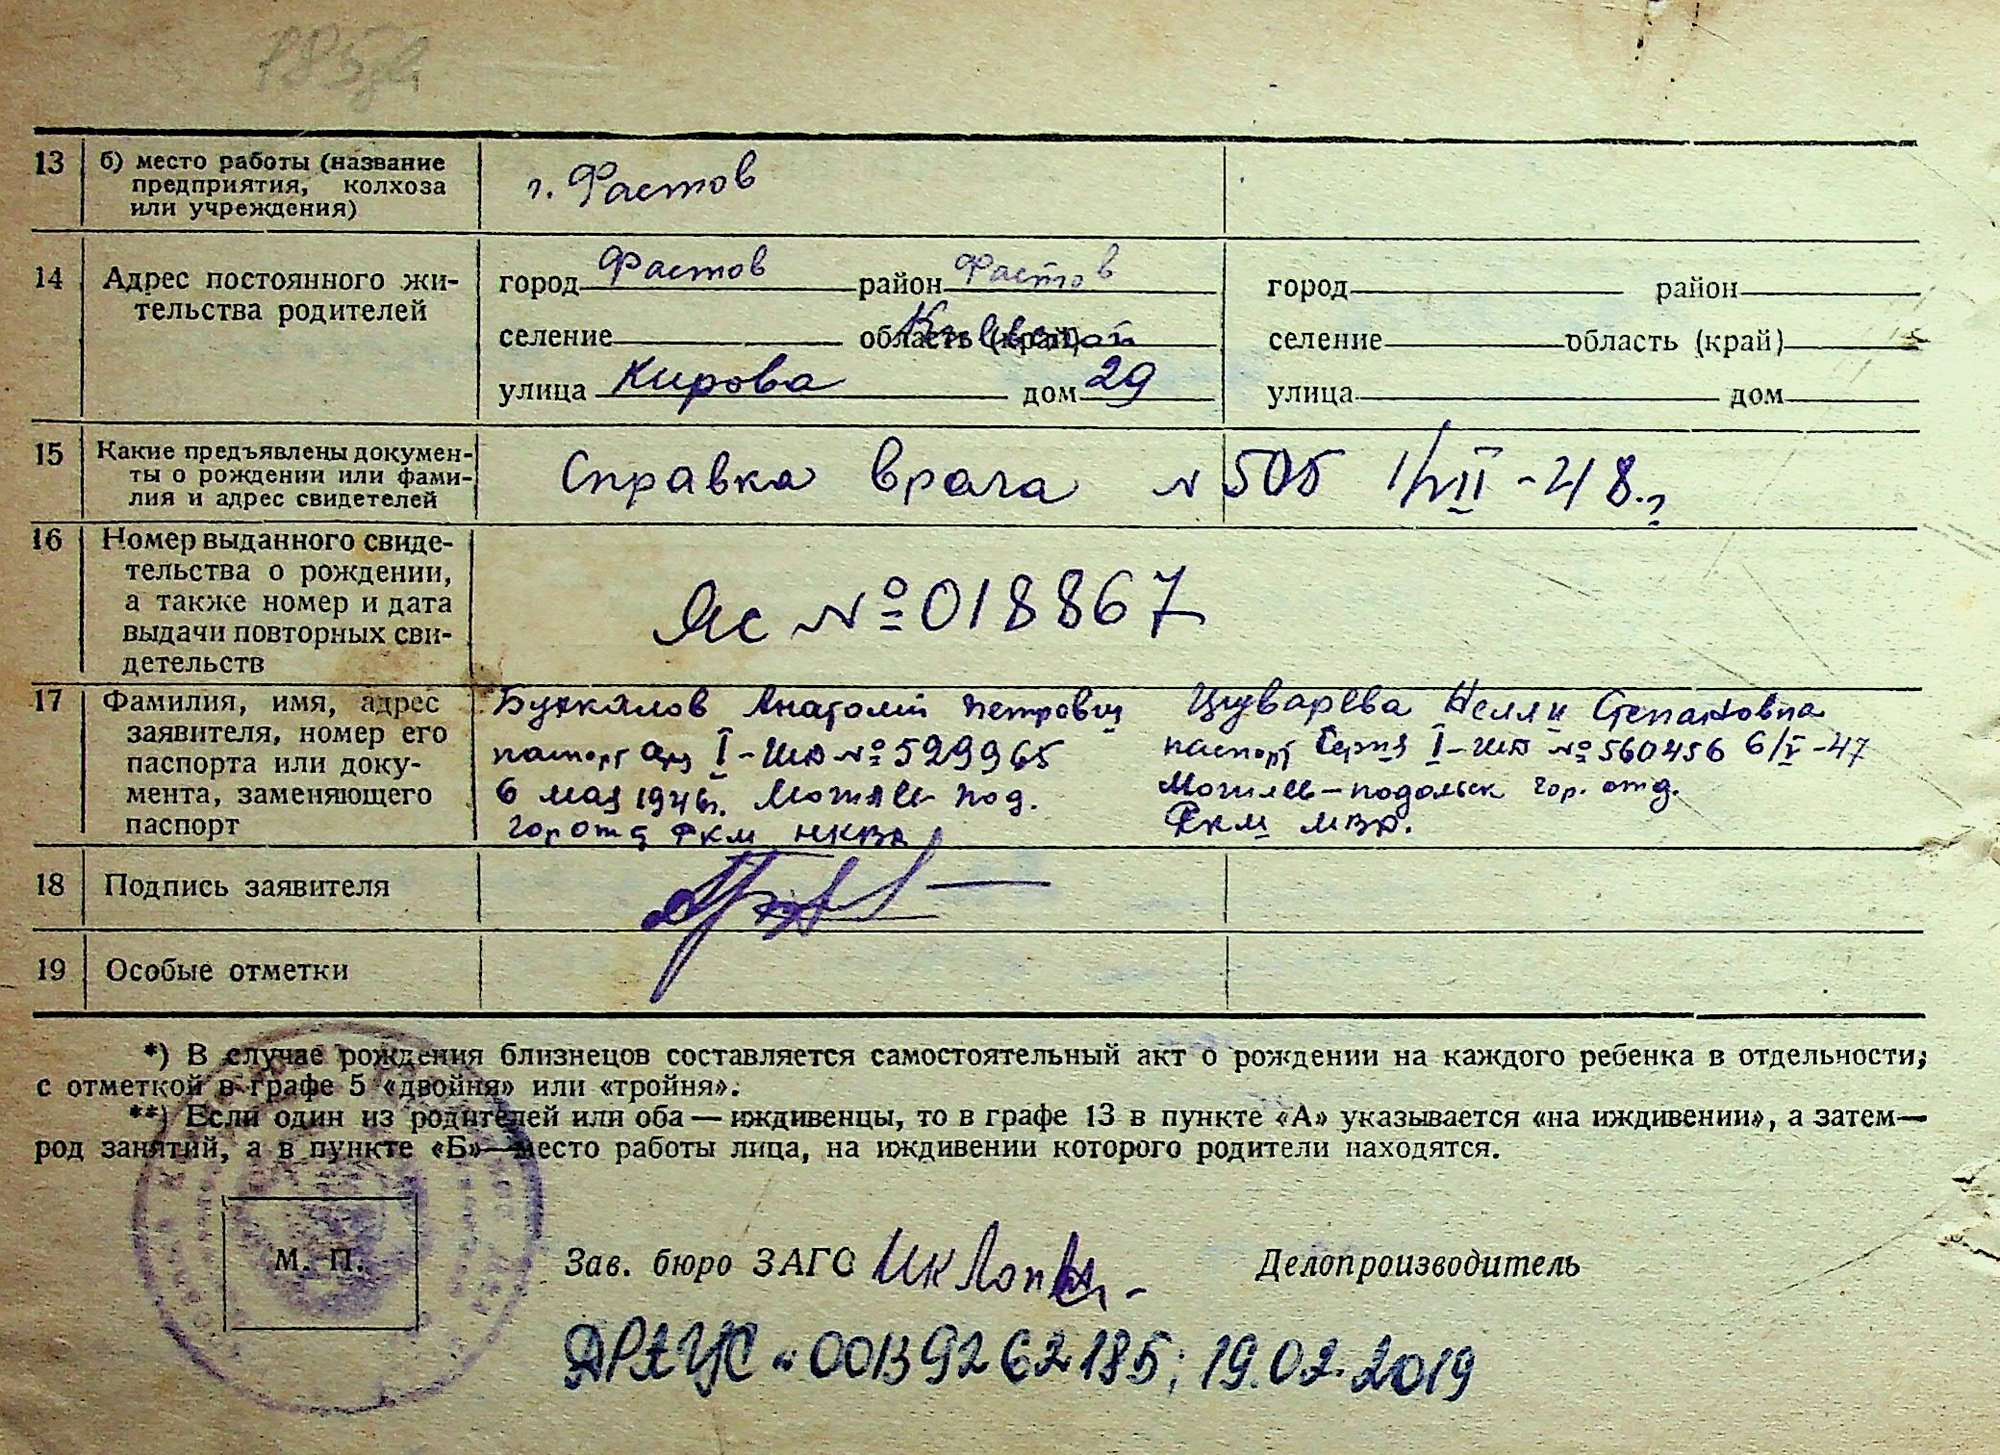 13 б) место работы (название
предприятия, колхоза
или учреждения)
г. Фастов
14 Адрес постоянного жи-
тельства родителей
город Фастов район Фастов
селение область (край) Киевской
улица Кирова дом 29
город район
селение область (край)
улица дом
15 Какие предъявлены докумен-
ты о рождении или фами-
лия и адрес свидетелей
Справка врача N 505 1/VII-48 г
16 Номер выданного свиде-
тельства о рождении,
а также номер и дата
выдачи повторных сви-
детельств
Яс №018867
17 Фамилия, имя, адрес
заявителя, номер его
паспорта или доку-
мента, заменяющего
паспорт
Анатолий Петрович
паспорт I-ША №529965
6 мая 1946г. Могилев под.
гор отд РКМ НКВД
Нелли Степановна
паспорт Серия I-ША №560456 6/V-47
Могилев-подольск гор. отд.
РКМ МВД.
18 Подпись заявителя
19 Особые отметки
*) В случае рождения близнецов составляется самостоятельный акт о рождении на каждого ребенка в отдельности,
с отметкой в графе 5 «двойня» или «тройня».
**) Если один из родителей или оба — иждивенцы, то в графе 13 в пункте «А» указывается «на иждивении», а затем—
род занятий, а в пункте «Б»—место работы лица, на иждивении которого родители находятся.
М. П.
Зав. бюро ЗАГС
Делопроизводитель
ДРАЦС 00139262185; 19.02.2019